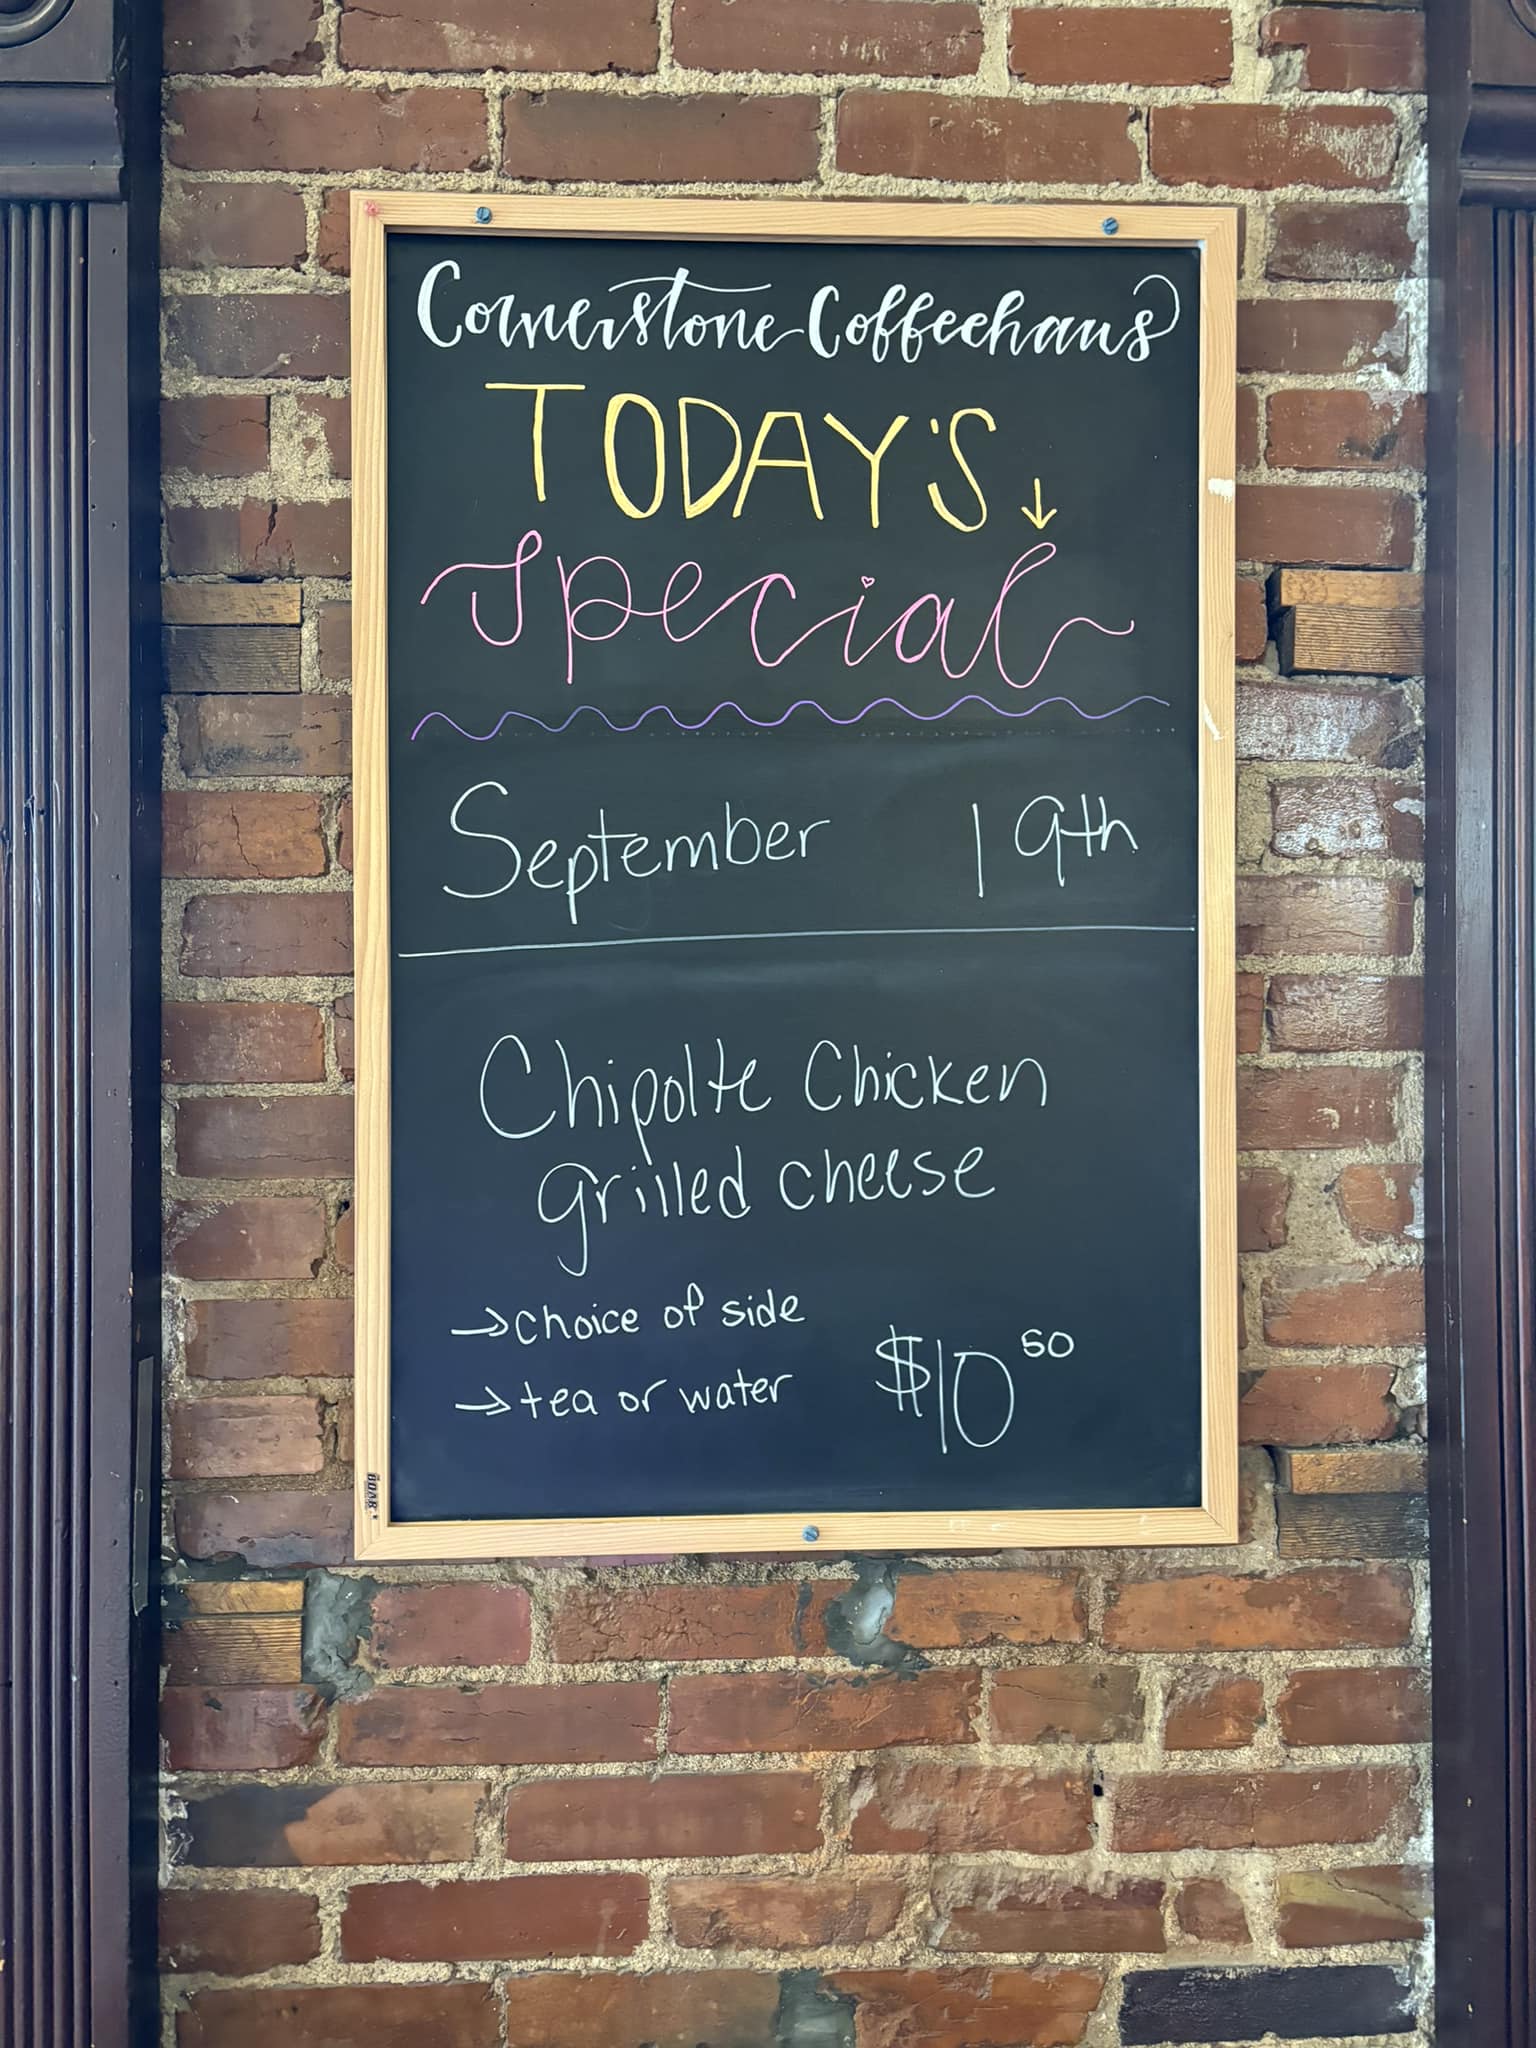 Cornerstone Coffeehaus
TODAY'S ↓
special
September 19th
Chipolte Chicken
grilled cheese
→choice of side
→tea or water
$10 50